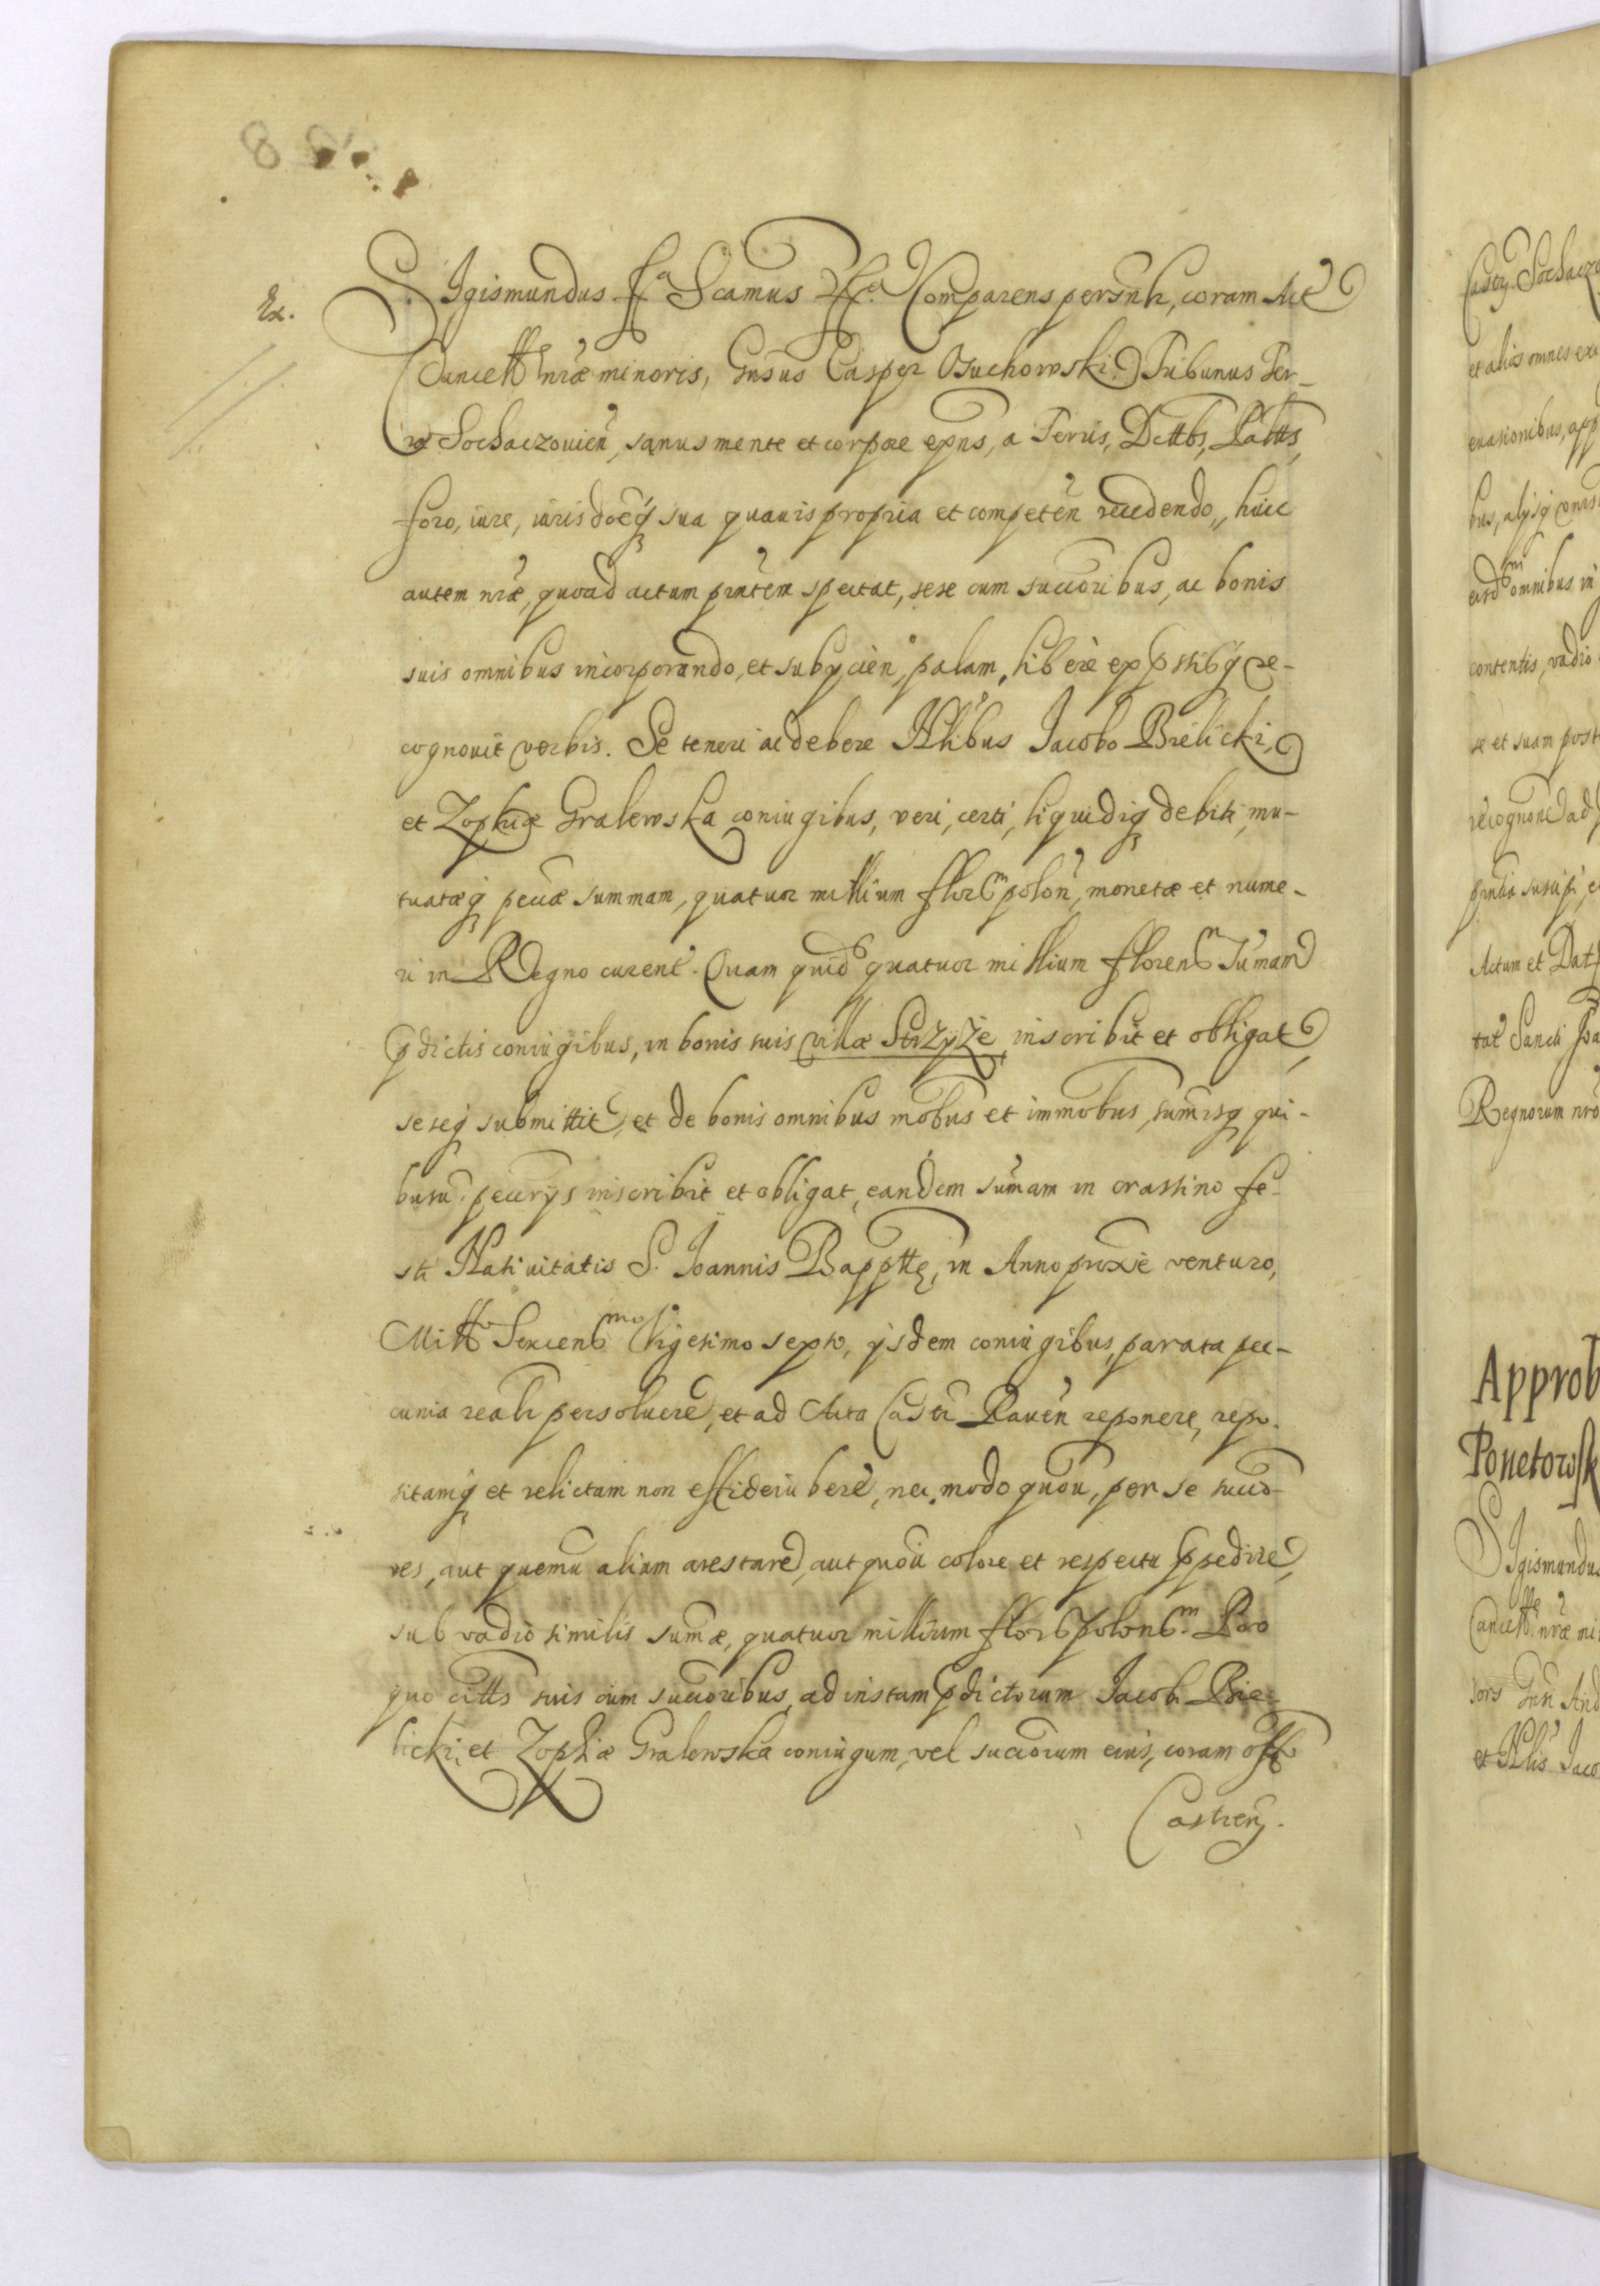 Ex.
SIgismundus &ca Scamus &ca Comparens persnlr, coram Act
Cancell nræ minoris, Gnsus Casper Osuchowski Tribunus Ter-
ræ Sochaczouien, sanus mente et corpore exns, a Terris, Dcttbs, Pàttts,
foro, iure, iurisdoēq sua quauis propria et competen recedendo, huic
autem nræ, quoad actum pntem spectat, sese cum succoribus, ac bonis
suis omnibus incorporando, et subycien, palam, libere exp stibq re-
cognouit verbis. Se teneri ac debere Nlibus Jacobo Bielicki,
et Zophiæ Gralewska coniugibus, veri, certi, liquidiq debiti, mu-
tuatæq pecuæ summam, quatuor millium flor polon, monetæ et nume-
ri in Regno curent. Quam quid quatuor millium floren Sumam
pdictis coniugibus, in bonis suis villæ Strzyże, inscribit et obligat,
seseq submittit, et de bonis omnibus mobus et immobus, sumisq qui-
busu pecurys inscribit et obligat, eandem sumam in crastino fe-
sti Natiuitatis S. Joannis Bappttę, in Anno proxie venturo,
Mill Sexcen mo Vigesimo septo, ysdem coniugibus, parata pec-
cunia reali persoluere, et ad Acta Castri Rauen reponere, repo-
sitamq et relictam non
modo quou, per se succo-
res, aut quemu alium arestare, aut quouu colore et respectu ppedire,
sub vadio similis sumæ, quatuor millium flor polon. Pro
quo citts suis cum succoribus, ad instam pdictorum Jacobi Bie-
licki, et Zophiæ Gralewska coniugum, vel succorum eius, coram offo
Castren.
Castr. Sochacz
et alios omnes exc
euasionibus, app
omnibus in
contentis, vadio
se et suam post
recognone ad
Actum et Dat
tat Sancti Joa
Regnorum nro
Approb
Ponetowsk
SIgismundus
Cancell nræ mi
et Nlis Jaco